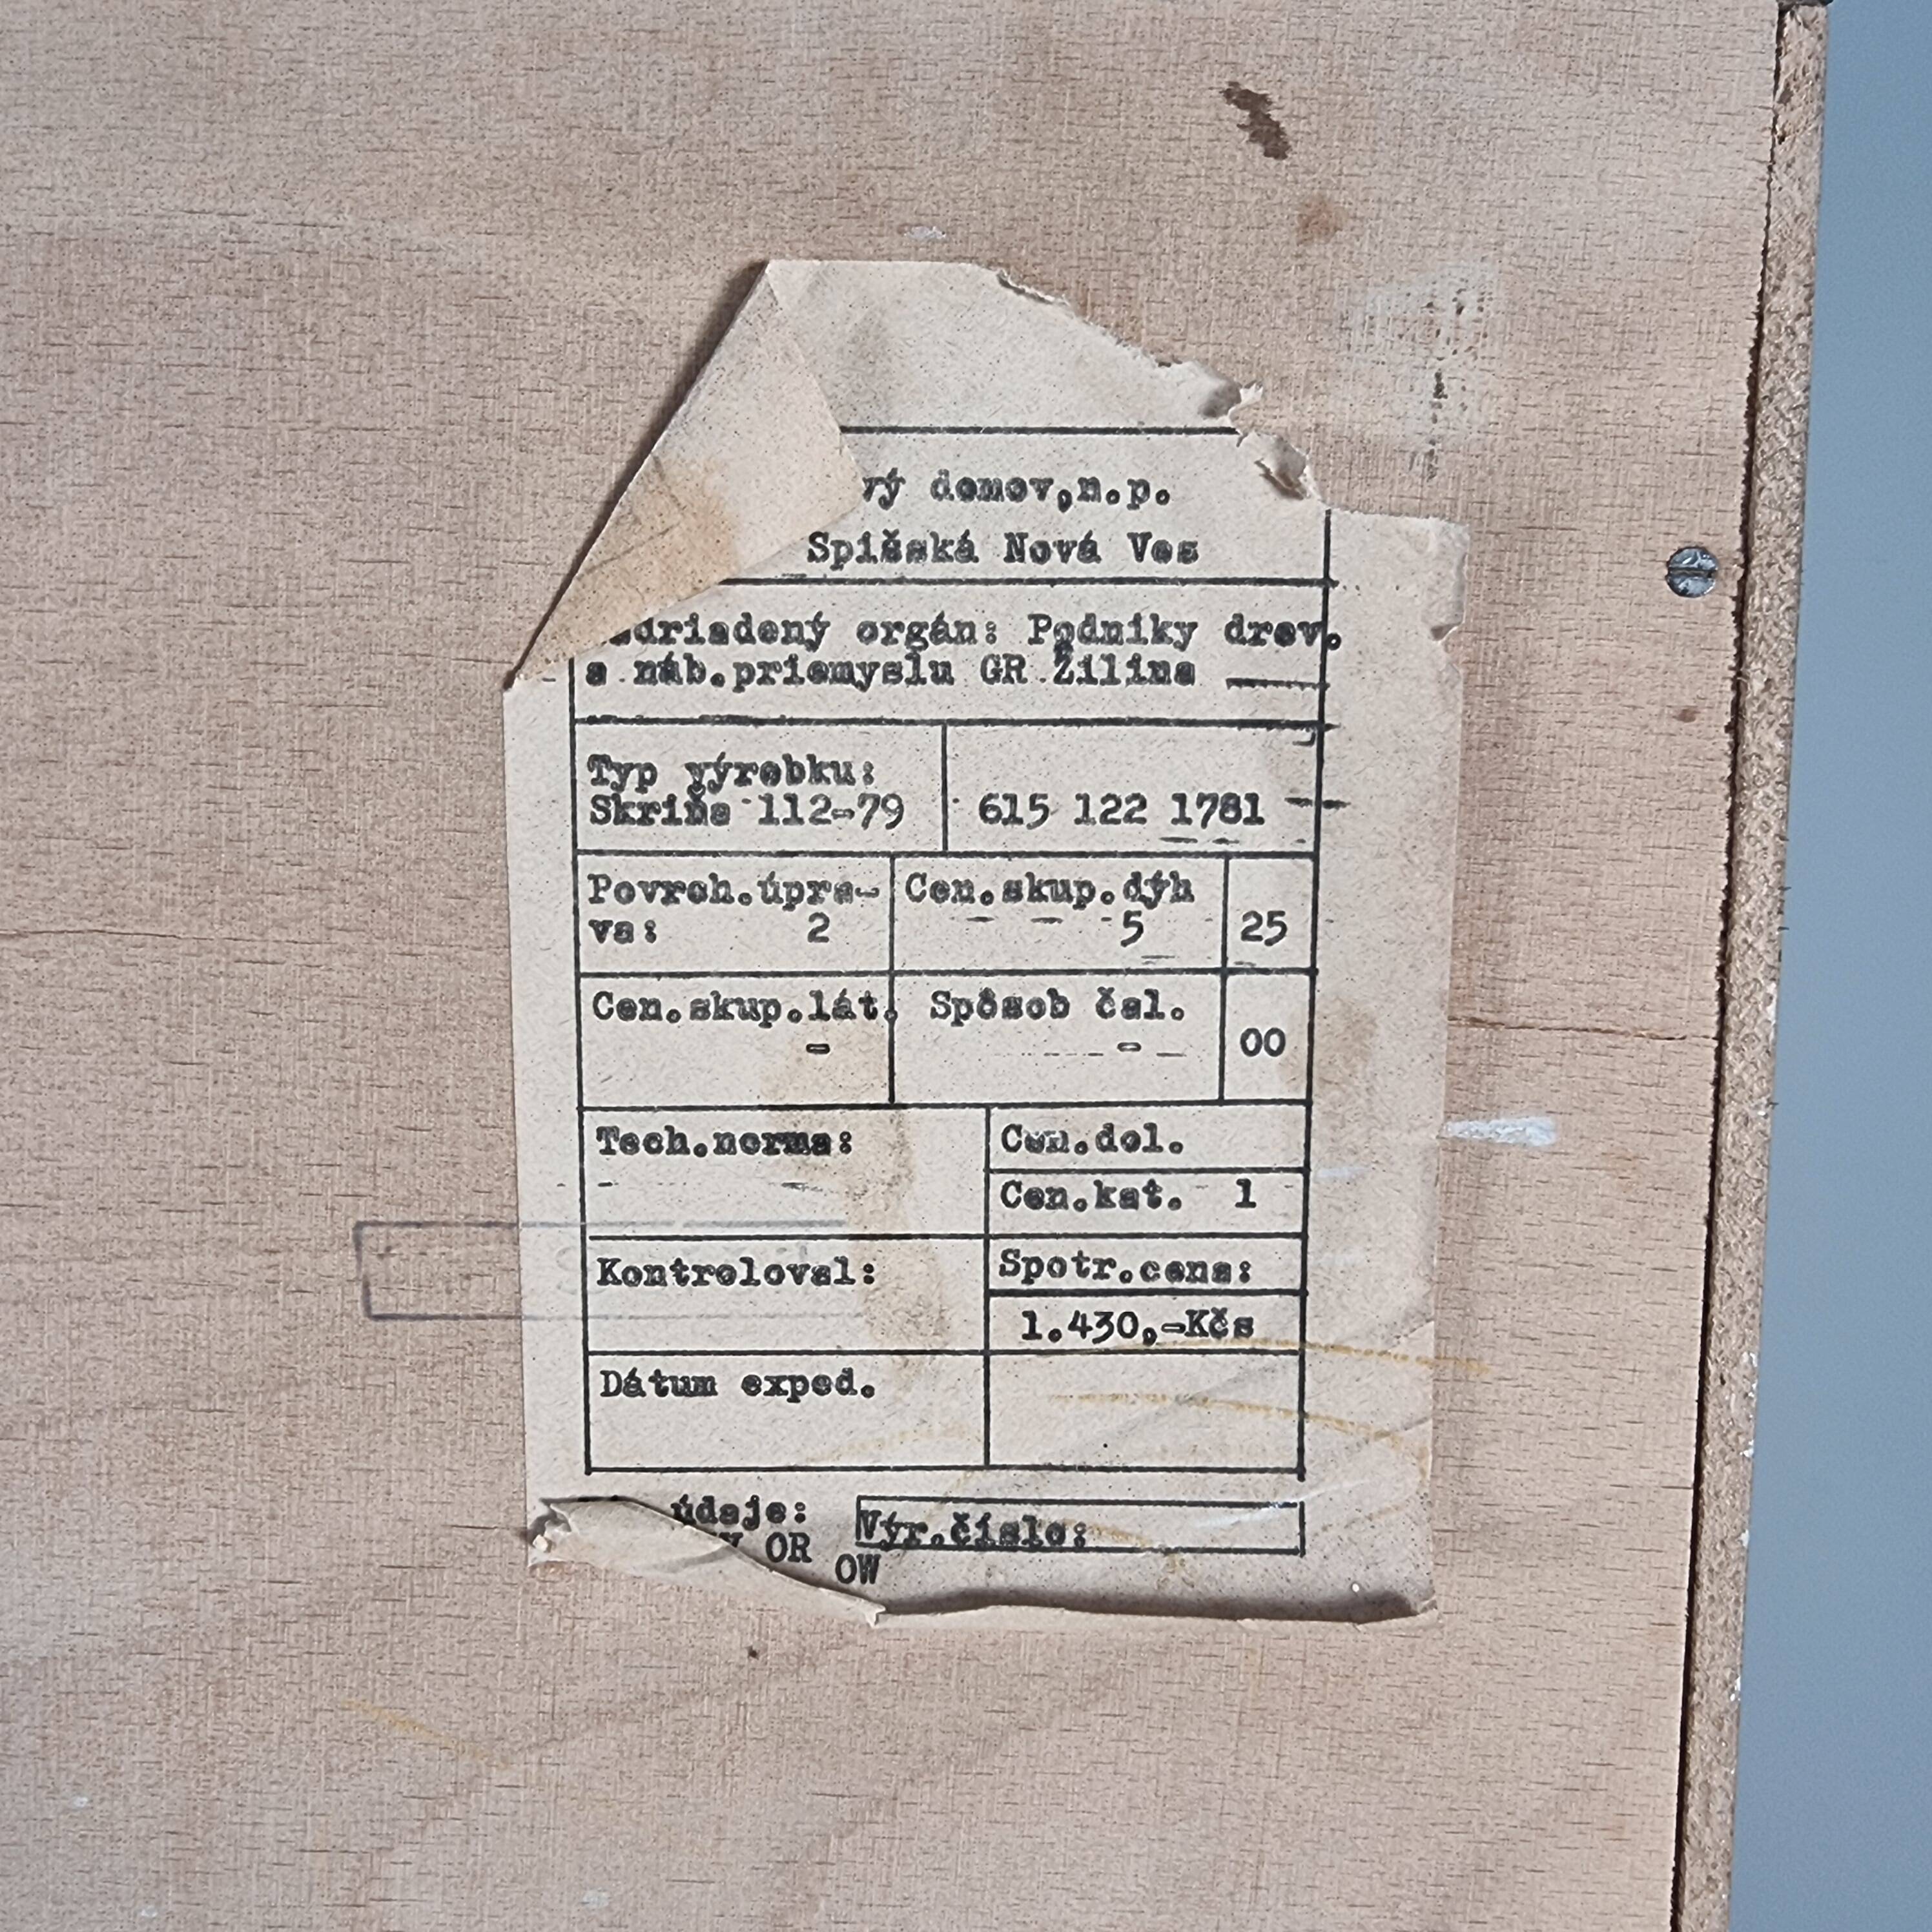 vý domov,n.p.
Spišská Nová Ves
adriadený orgán: Podniky drev.
a náb.priemyslu GR Žilina
Typ výrobku:
Skriňa 112-79
615 122 1781
Povrch.úpra-
va: 2
Cen.skup.dýh
5
25
Cen.skup.lát.
-
Spôsob čal.
-
00
Tech.norma:
-
Cen.dol.
Cen.kat. 1
Kontroloval:
Spotr.cena:
1.430,-Kčs
Dátum exped.
údaje:
OR
OW
Výr.číslo: